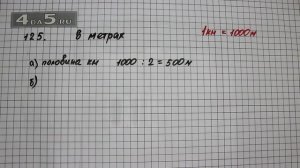 4DA5.RU
125. в метрах
1 км = 1000 м
а) половина км 1000 : 2 = 500 м
б)